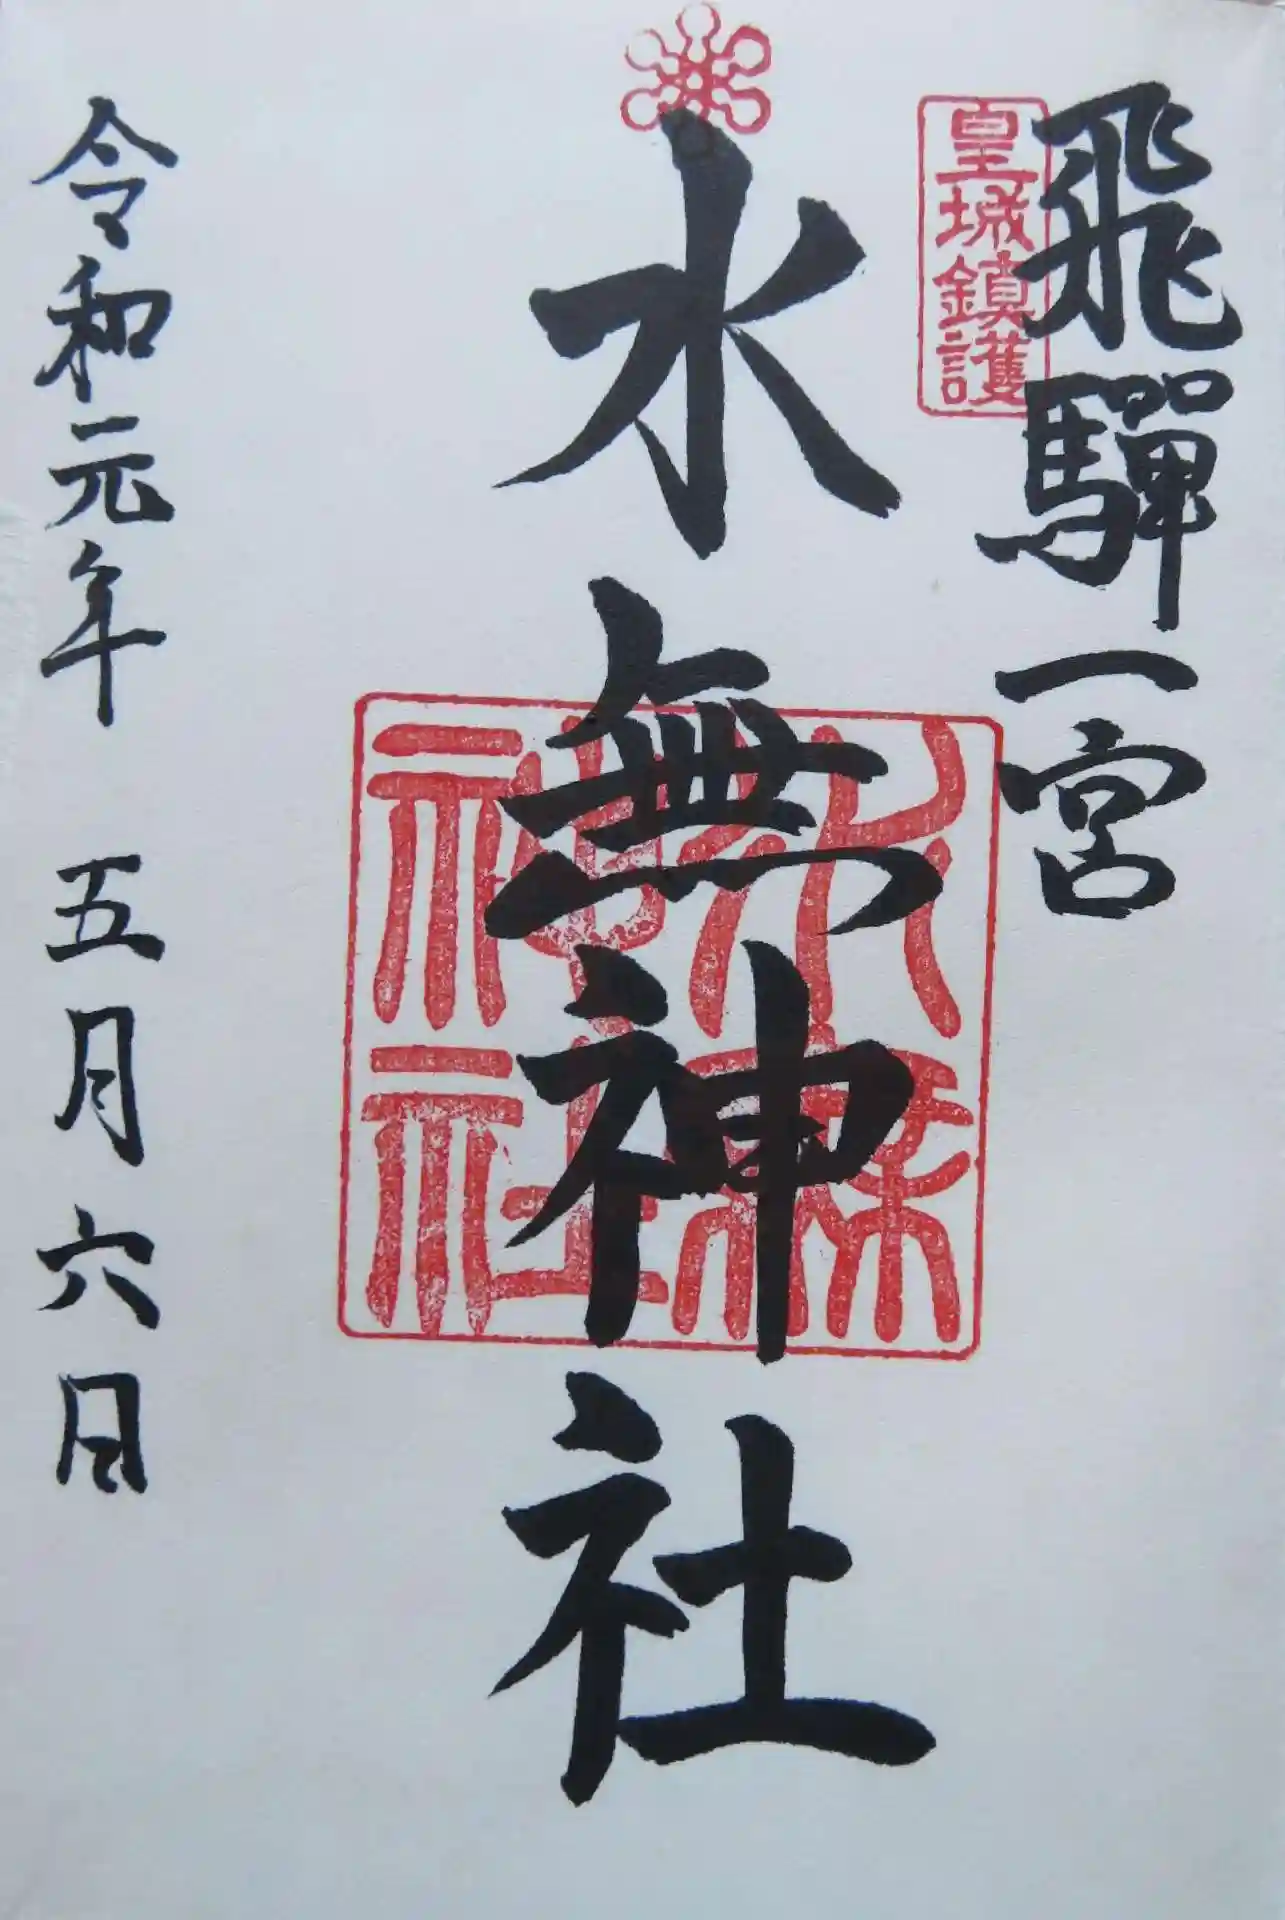 飛驒一宮
皇城鎮護
水無神社
水無神社
令和元年 五月六日